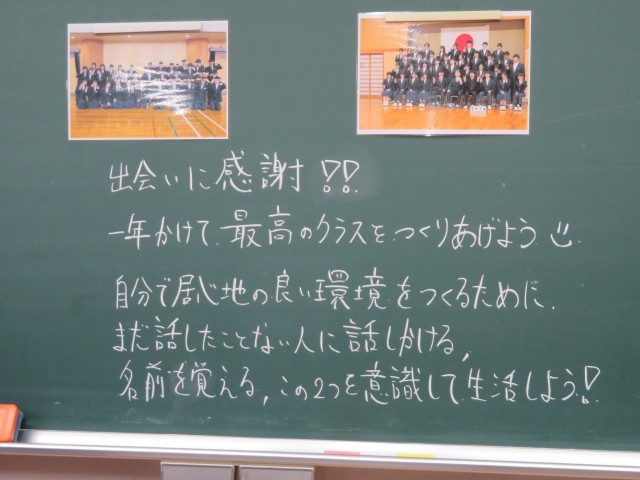 出会いに感謝!!
一年かけて最高のクラスをつくりあげよう
自分で居心地の良い環境をつくるために、
まだ話したことない人に話しかける,
名前を覚える,この2つを意識して生活しよう!